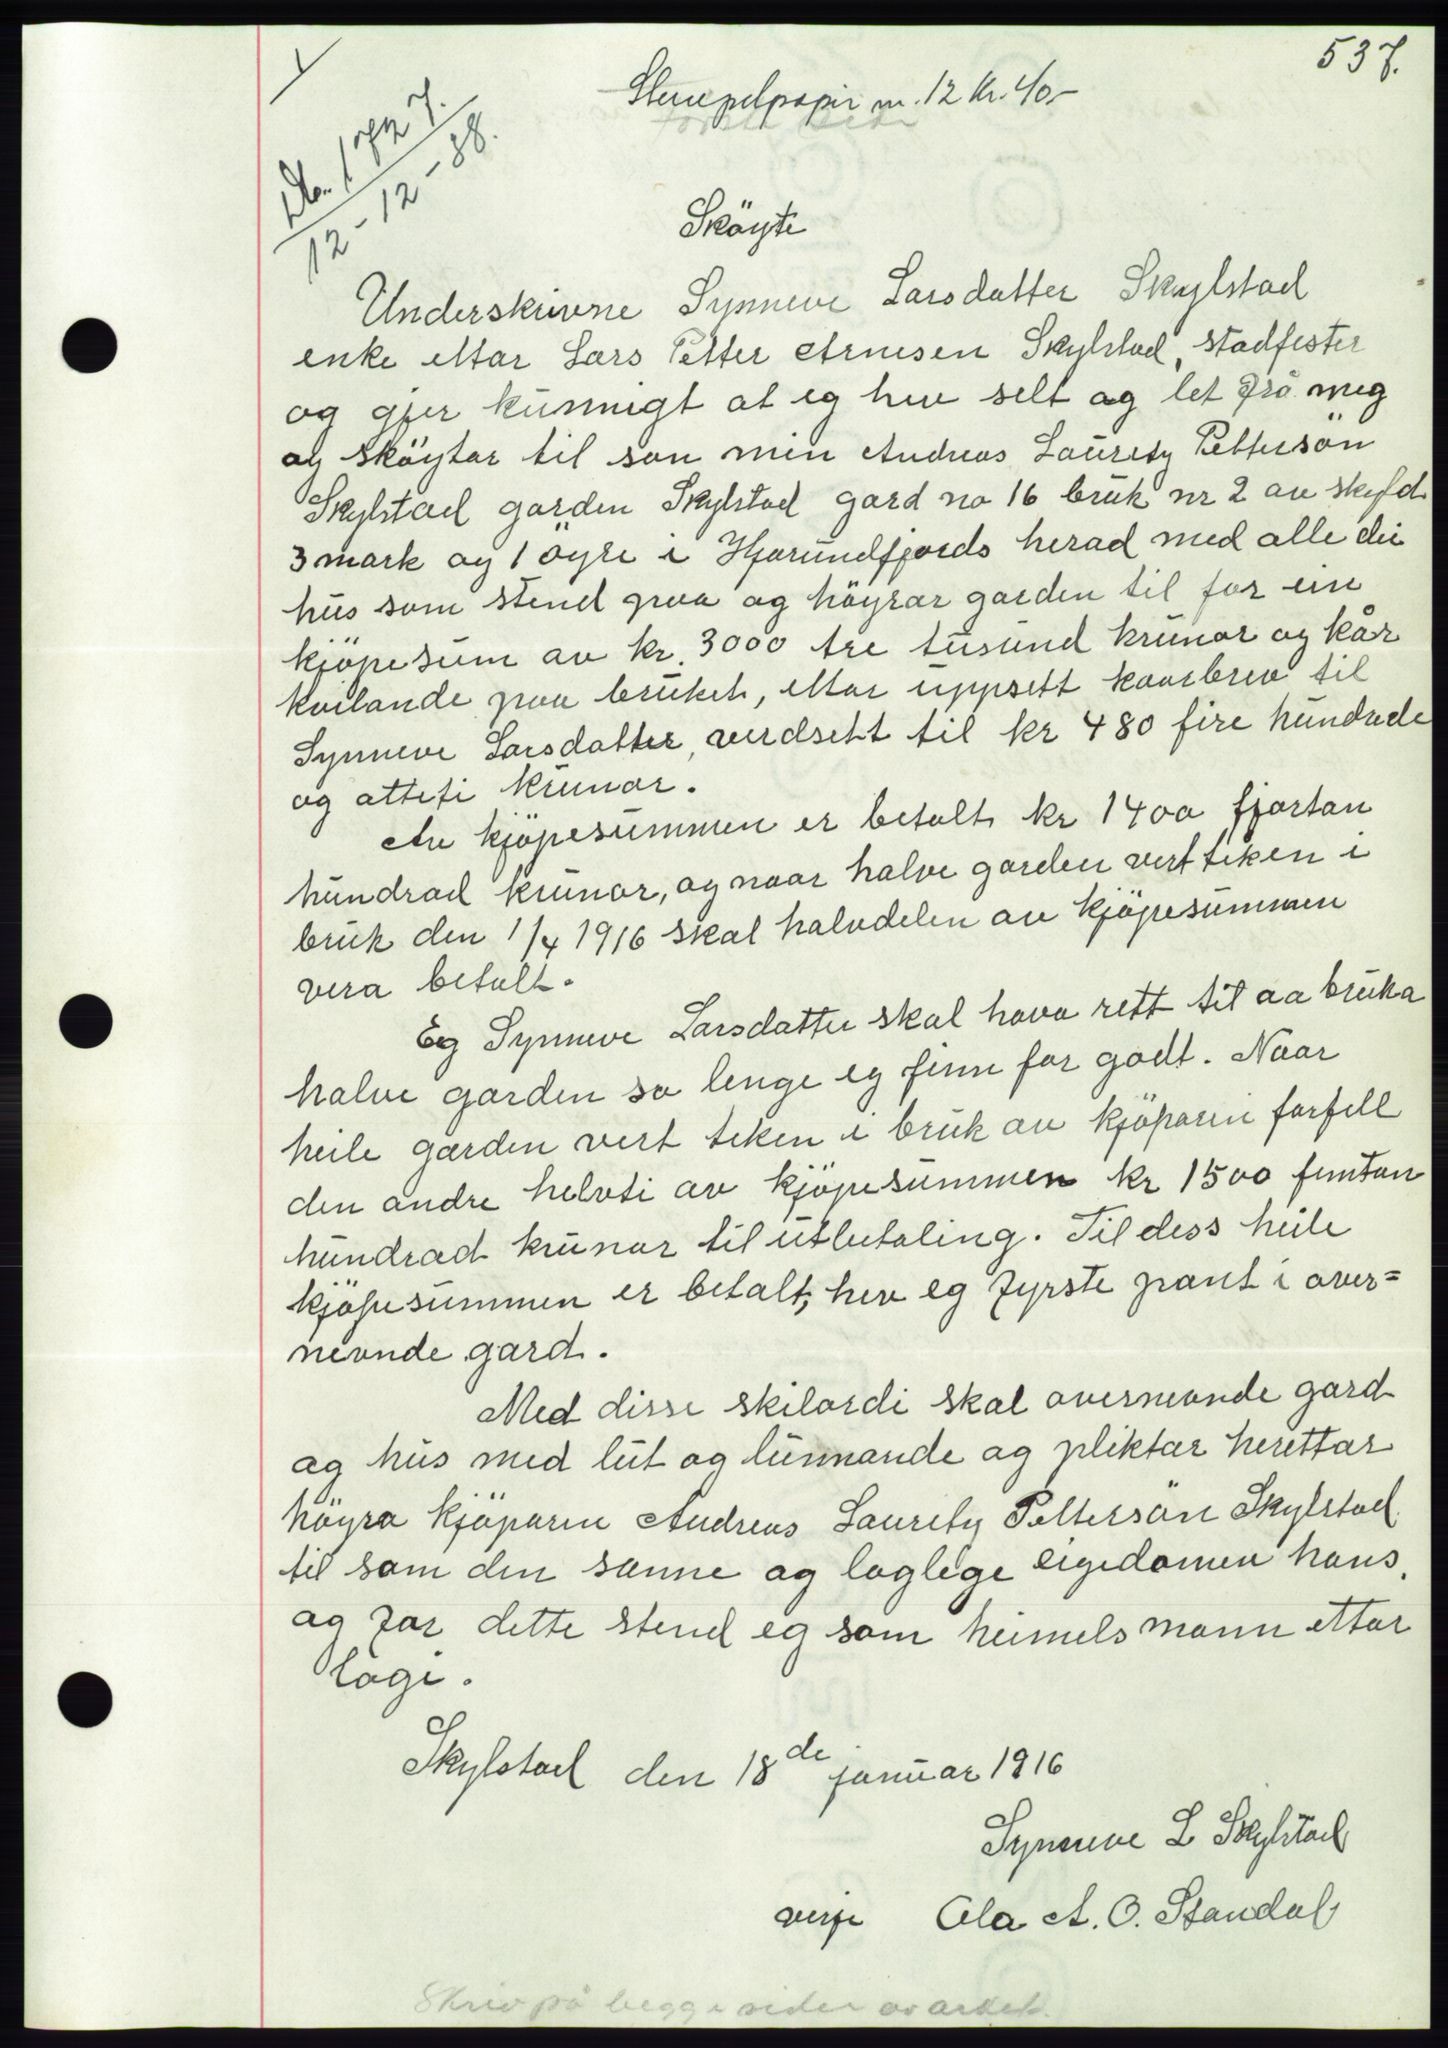 537.
Stempelpapir m. 12 Kr. 40.-
Db. 1727.
12-12-38.
Sköyte
Underskrivne Synneve Larsdatter Skylstad
enke ettar Lars Petter Arnesen Skylstad, stadfester
og gjer kunnigt at eg hev selt og let frå meg
og sköytar til son min Andreas Lauritz Pettersön
Skylstad garden Skylstad gard no 16 bruk nr 2 av skyld
3 mark og 1 öyre i Hjørundfjords herad med alle dei
hus som stend paa og höyrar garden til for ein
kjöpesum av kr. 3000 tre tusund krunor og kår
kvilande paa bruket, ettar uppsett kaarbrev til
Synneve Larsdatter, verdsett til kr 480 fire hundrade
og atteti krunor.
Av kjöpesummen er betalt kr 1400 fjortan
hundrad krunor, og naar halve garden vert teken i
bruk den 1/4 1916 skal halvdelen av kjöpesummen
vera betalt.
Eg Synneve Larsdatter skal hava rett til aa bruka
halve garden so lenge eg finn for godt. Naar
heile garden vert teken i bruk av kjöparen forfell
den andre helvti av kjöpesummen kr 1500 femtan
hundrad krunor til utbetaling. Til dess heile
kjöpesummen er betalt, hev eg fyrste pant i over=
nevnde gard.
Med disse skilordi skal overnevnde gard
og hus med lut og lunnande og pliktar herettar
höyra kjöparen Andreas Lauritz Pettersön Skylstad
til som den sanne og loglege eigedomen hans,
og for dette stend eg som heimelsmann ettar
logi.
Skylstad den 18de januar 1916
Synneve L Skylstad
verje Ola A. O. Standal
Skriv på begge sider av arket.